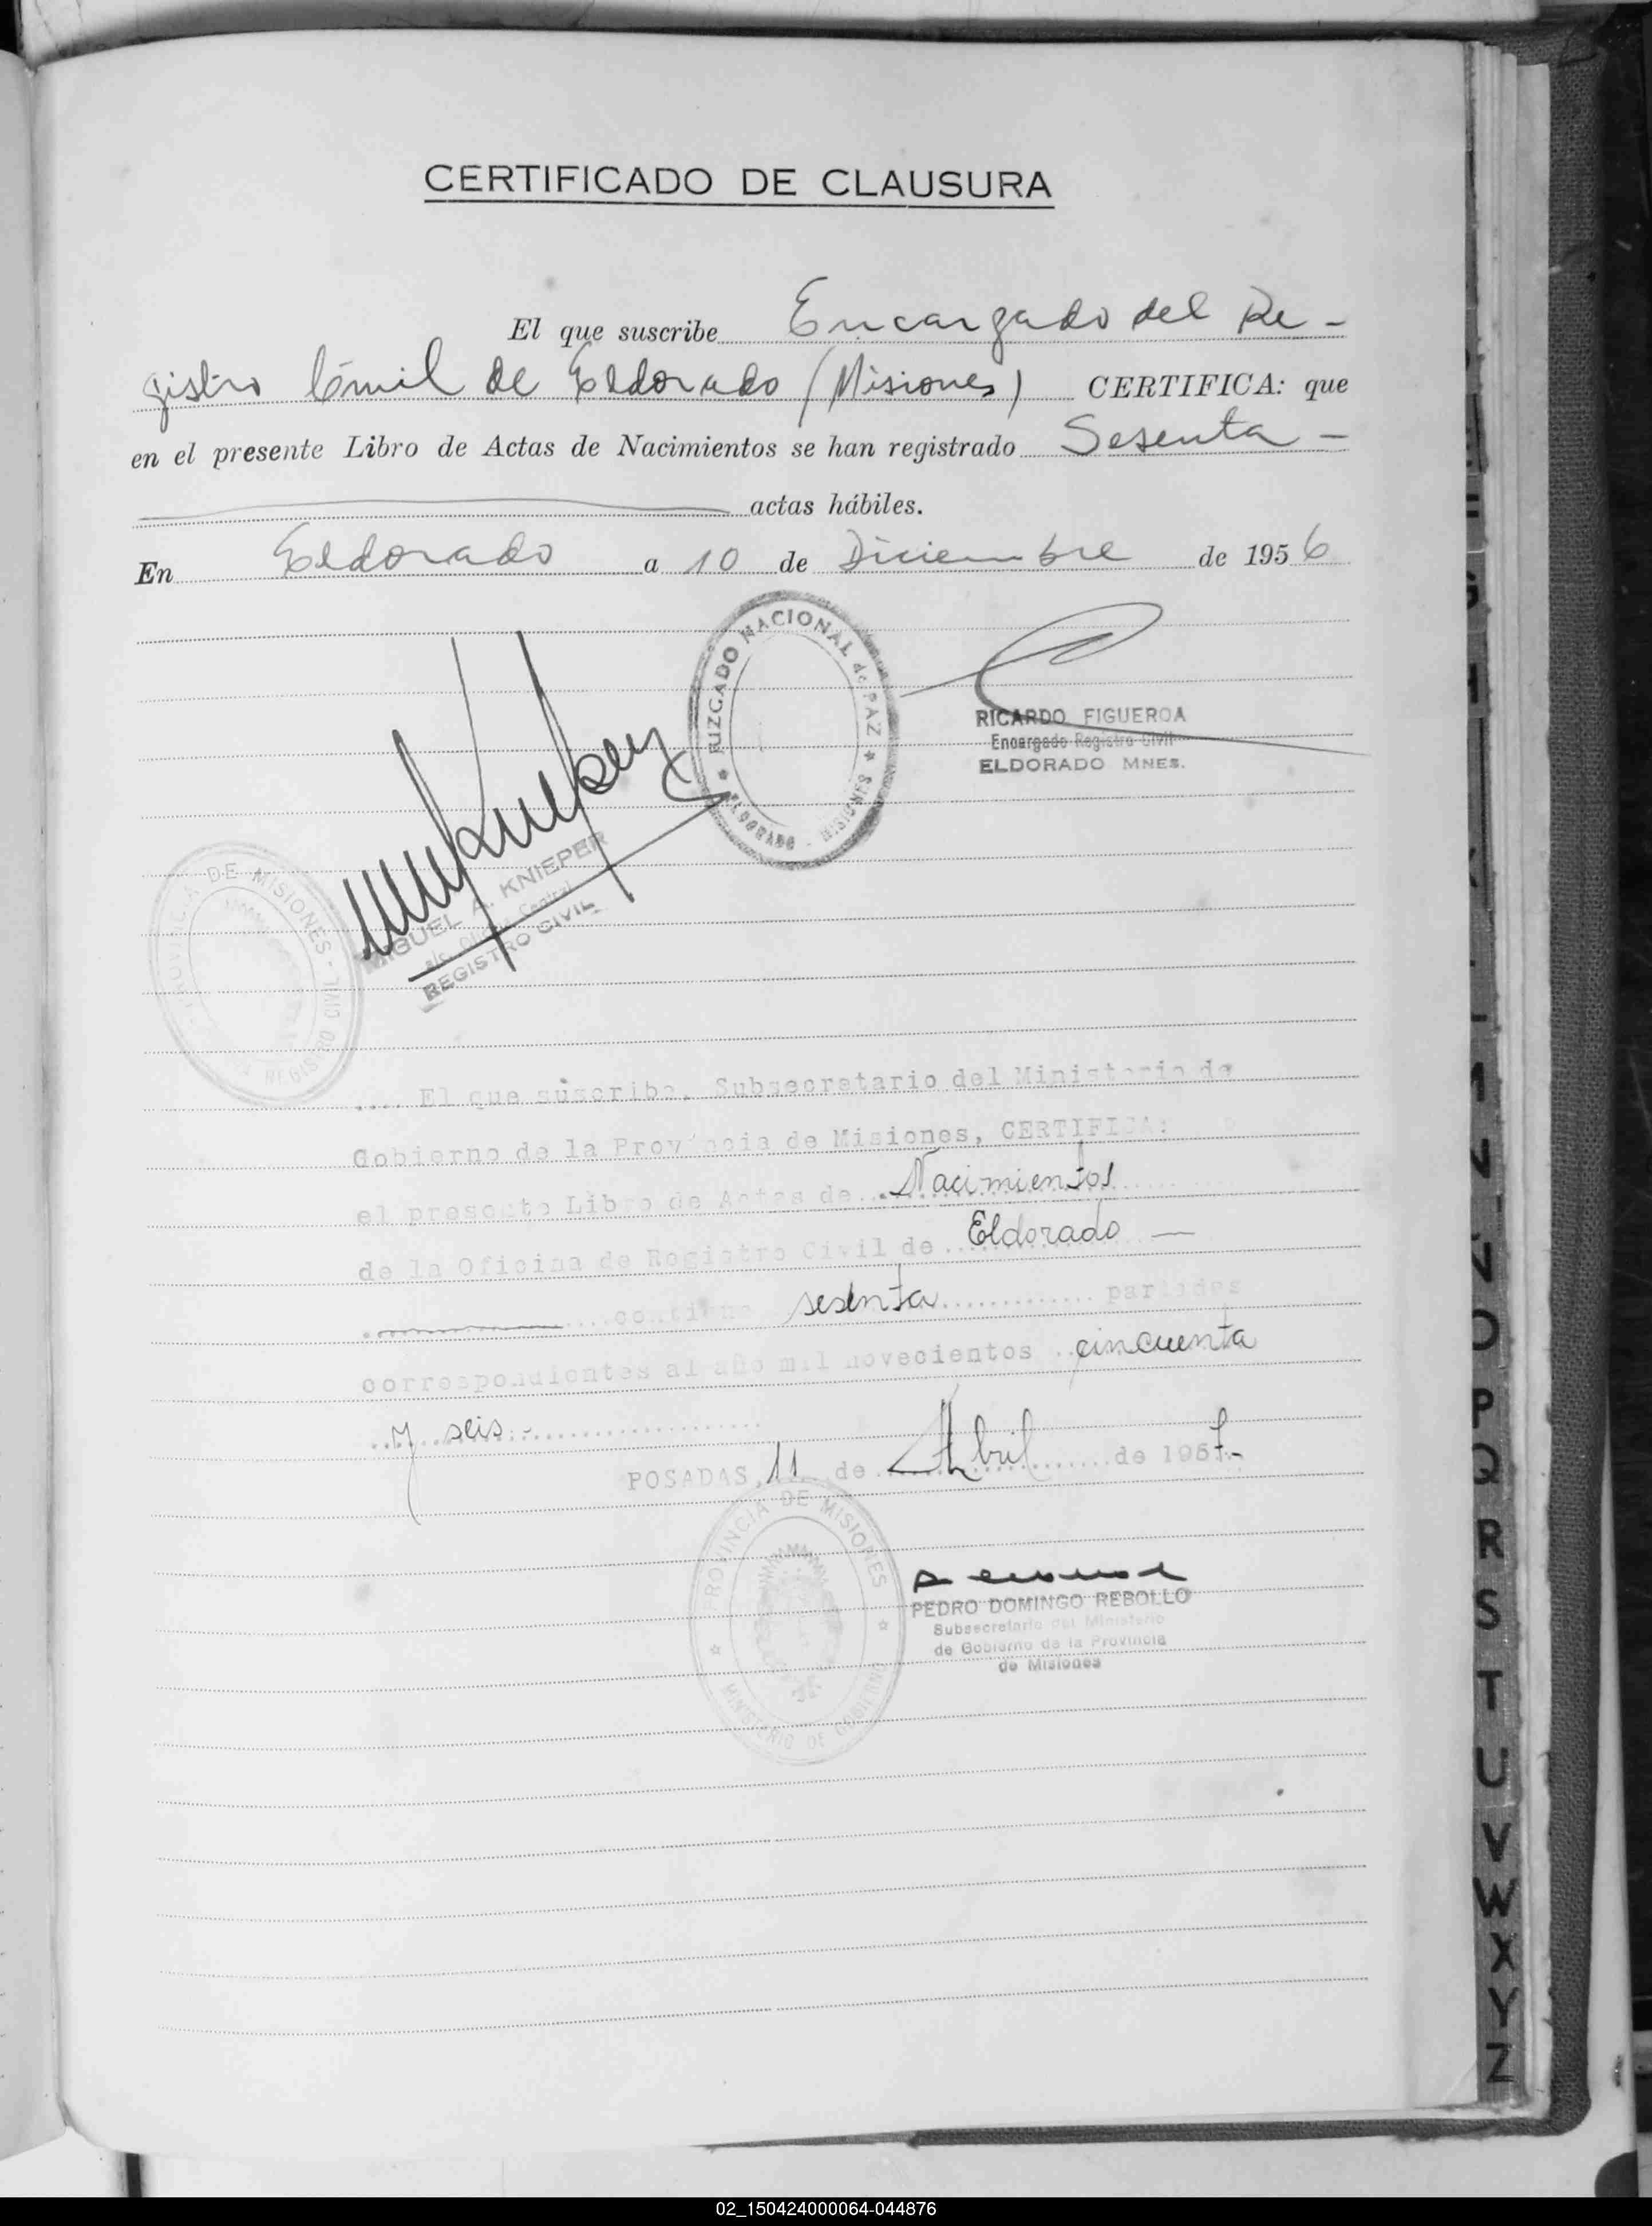 CERTIFICADO DE CLAUSURA
El que suscribe Encargado del Re-
gistro Civil de Eldorado (Misiones) CERTIFICA: que
en el presente Libro de Actas de Nacimientos se han registrado Sesenta -
actas hábiles.
En Eldorado a 10 de Diciembre de 1956
JUZGADO NACIONAL de PAZ
ELDORADO - MISIONES
RICARDO FIGUEROA
Encargado Registro Civil
ELDORADO MNES.
MIGUEL A. KNIEPER
Central
REGISTRO CIVIL
PROVINCIA DE MISIONES
.... El que suscribe, Subsecretario del Ministerio de
Gobierno de la Provincia de Misiones, CERTIFICA:
el presente Libro de Actas de ... Nacimientos
de la Oficina de Registro Civil de ... Eldorado —
contiene sesenta partidas
correspondientes al año mil novecientos .. cincuenta
y seis.-
POSADAS, 11 de Abril de 1957.-
PROVINCIA DE MISIONES
MINISTERIO DE GOBIERNO
PEDRO DOMINGO REBOLLO
Subsecretario del Ministerio
de Gobierno de la Provincia
de Misiones
G
P
Q
R
S
T
U
V
W
X
Y
Z
02_150424000064-044876